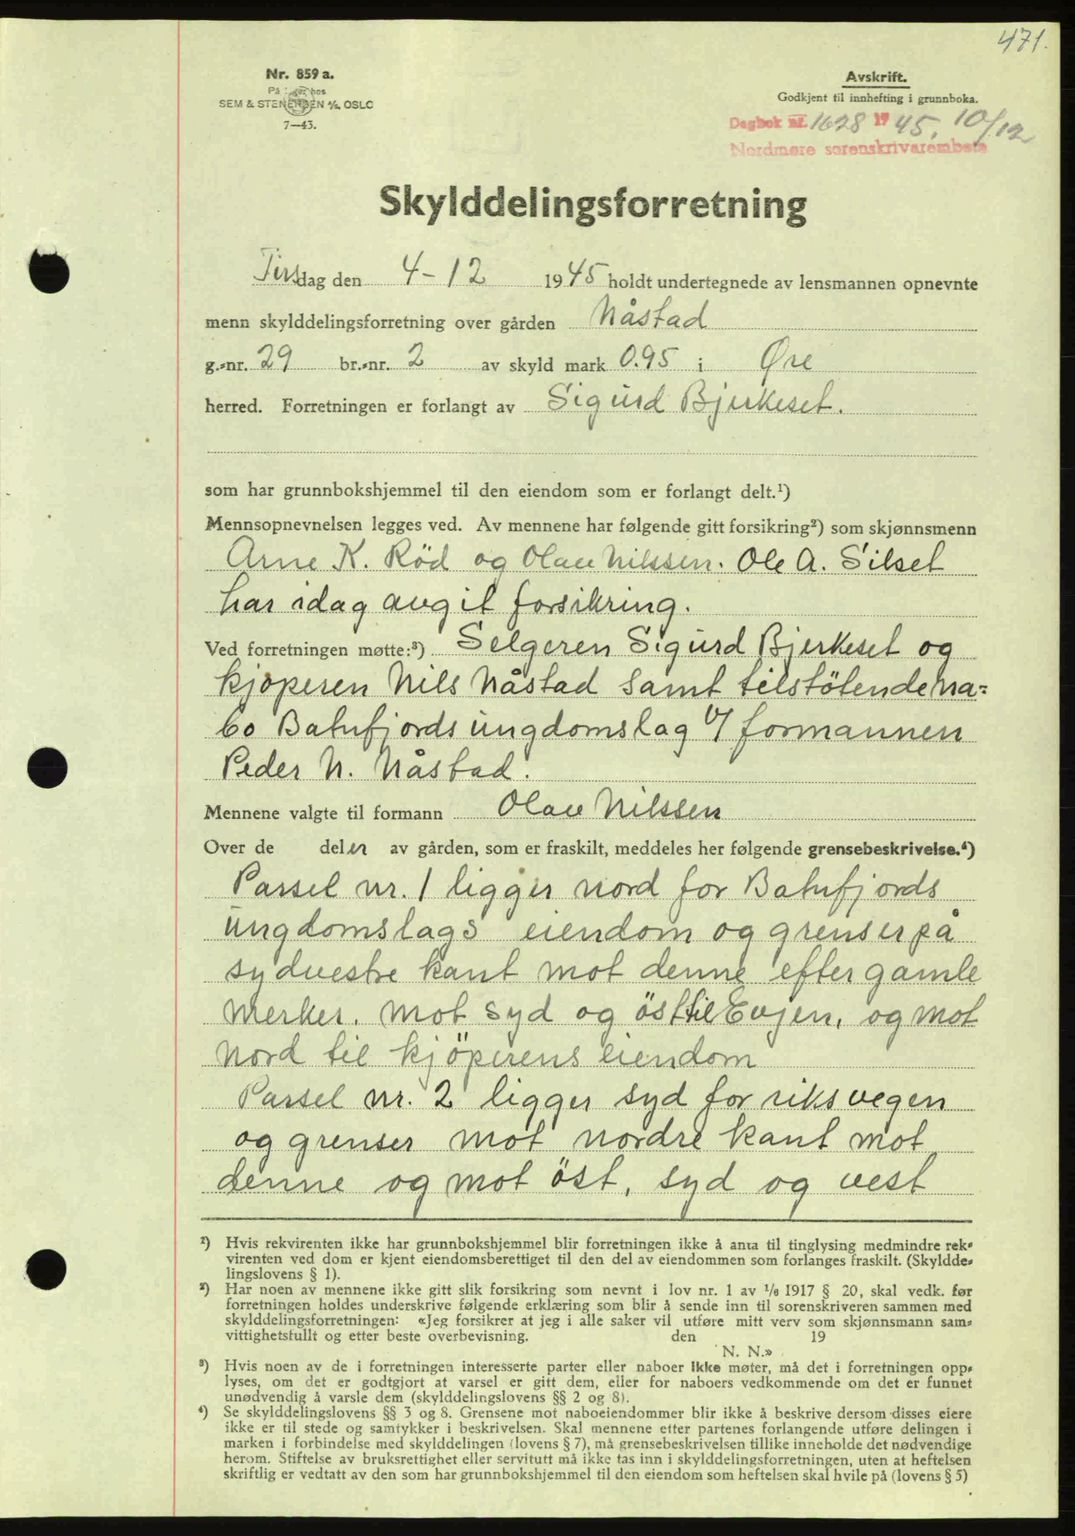 471.
Nr. 859 a.
På lager hos
SEM & STENERSEN A/S, OSLO
7—43.
Avskrift.
Godkjent til innhefting i grunnboka.
Dagbok nr. 1628 19 45. 10/12
Nordmøre sorenskrivarembete
Skylddelingsforretning
Tirsdag den 4-12 1945 holdt undertegnede av lensmannen opnevnte
menn skylddelingsforretning over gården Nåstad
g.-nr. 29 br.-nr. 2 av skyld mark 0.95 i Øre
herred. Forretningen er forlangt av Sigurd Bjerkeset.
som har grunnbokshjemmel til den eiendom som er forlangt delt.¹)
Mennsopnevnelsen legges ved. Av mennene har følgende gitt forsikring²) som skjønnsmenn
Arne K. Rød og Olav Nilssen. Ole A. Silset
har idag avgit forsikring.
Ved forretningen møtte:³) Selgeren Sigurd Bjerkeset og
kjöperen Nils Nåstad samt tilstötende na=
bo Batnfjords ungdomslag v/ formannen
Peder N. Nåstad.
Mennene valgte til formann Olav Nilssen
Over de deler av gården, som er fraskilt, meddeles her følgende grensebeskrivelse.⁴)
Parsel nr. 1 ligger nord for Batnfjords
ungdomslags eiendom og grenser på
sydvestre kant mot denne efter gamle
merker. mot syd og öst til Evjen, og mot
nord til kjöperens eiendom
Parsel nr. 2 ligger syd for riksvegen
og grenser mot nordre kant mot
denne og mot öst, syd og vest
²) Hvis rekvirenten ikke har grunnbokshjemmel blir forretningen ikke å anta til tinglysing medmindre rek-
virenten ved dom er kjent eiendomsberettiget til den del av eiendommen som forlanges fraskilt. (Skyldde-
lingslovens § 1).
²) Har noen av mennene ikke gitt slik forsikring som nevnt i lov nr. 1 av 1/6 1917 § 20, skal vedk. før
forretningen holdes underskrive følgende erklæring som blir å sende inn til sorenskriveren sammen med
skylddelingsforretningen: «Jeg forsikrer at jeg i alle saker vil utføre mitt verv som skjønnsmann sam-
vittighetsfullt og etter beste overbevisning. den 19
N. N.»
³) Hvis noen av de i forretningen interesserte parter eller naboer ikke møter, må det i forretningen opp-
lyses, om det er godtgjort at varsel er gitt dem, eller for naboers vedkommende om det er funnet
unødvendig å varsle dem (skylddelingslovens §§ 2 og 8).
⁴) Se skylddelingslovens §§ 3 og 8. Grensene mot naboeiendommer blir ikke å beskrive dersom disses eiere
ikke er til stede og samtykker i beskrivelsen. Skal mennene etter partenes forlangende utføre delingen i
marken i forbindelse med skylddelingen (lovens § 7), må grensebeskrivelsen tillike inneholde det nødvendige
herom. Stiftelse av bruksrettighet eller servitutt må ikke tas inn i skylddelingsforretningen, uten at heftelsen
skriftlig er vedtatt av den som har grunnbokshjemmel til den eiendom som heftelsen skal hvile på (lovens § 5)